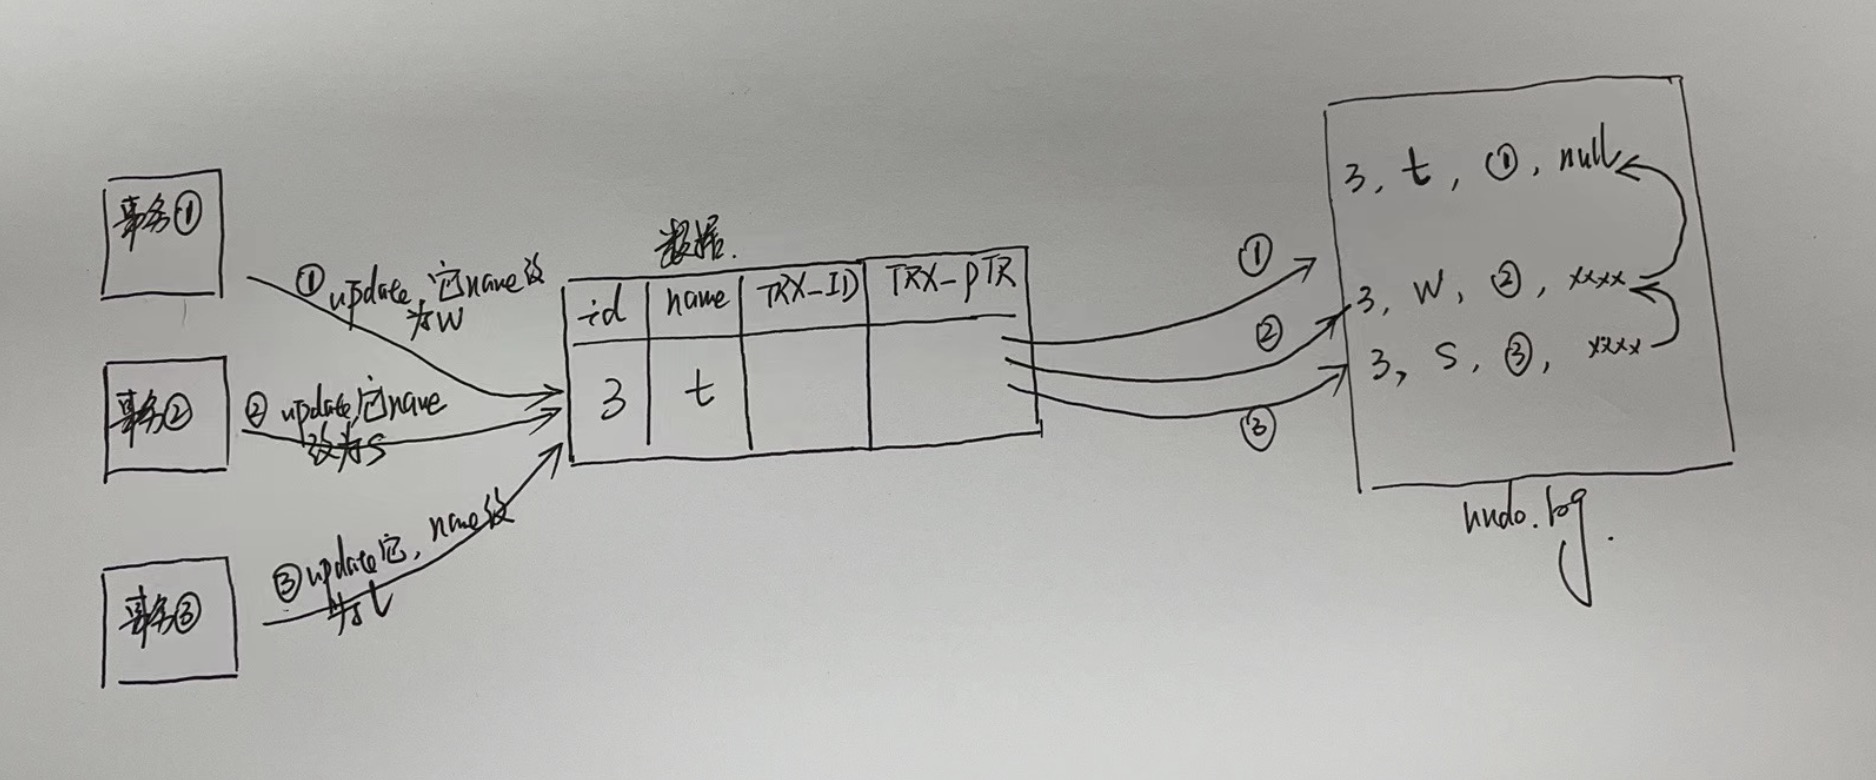 事务①
① update,它name改
为W
事务②
② update,它name
改为S
事务③
③ update它,name改
为t
数据.
id name TRX_ID TRX_PTR
3 t
①
②
③
3, t, ①, null
3, W, ②, xxxx
3, S, ③, xxxx
undo.log.